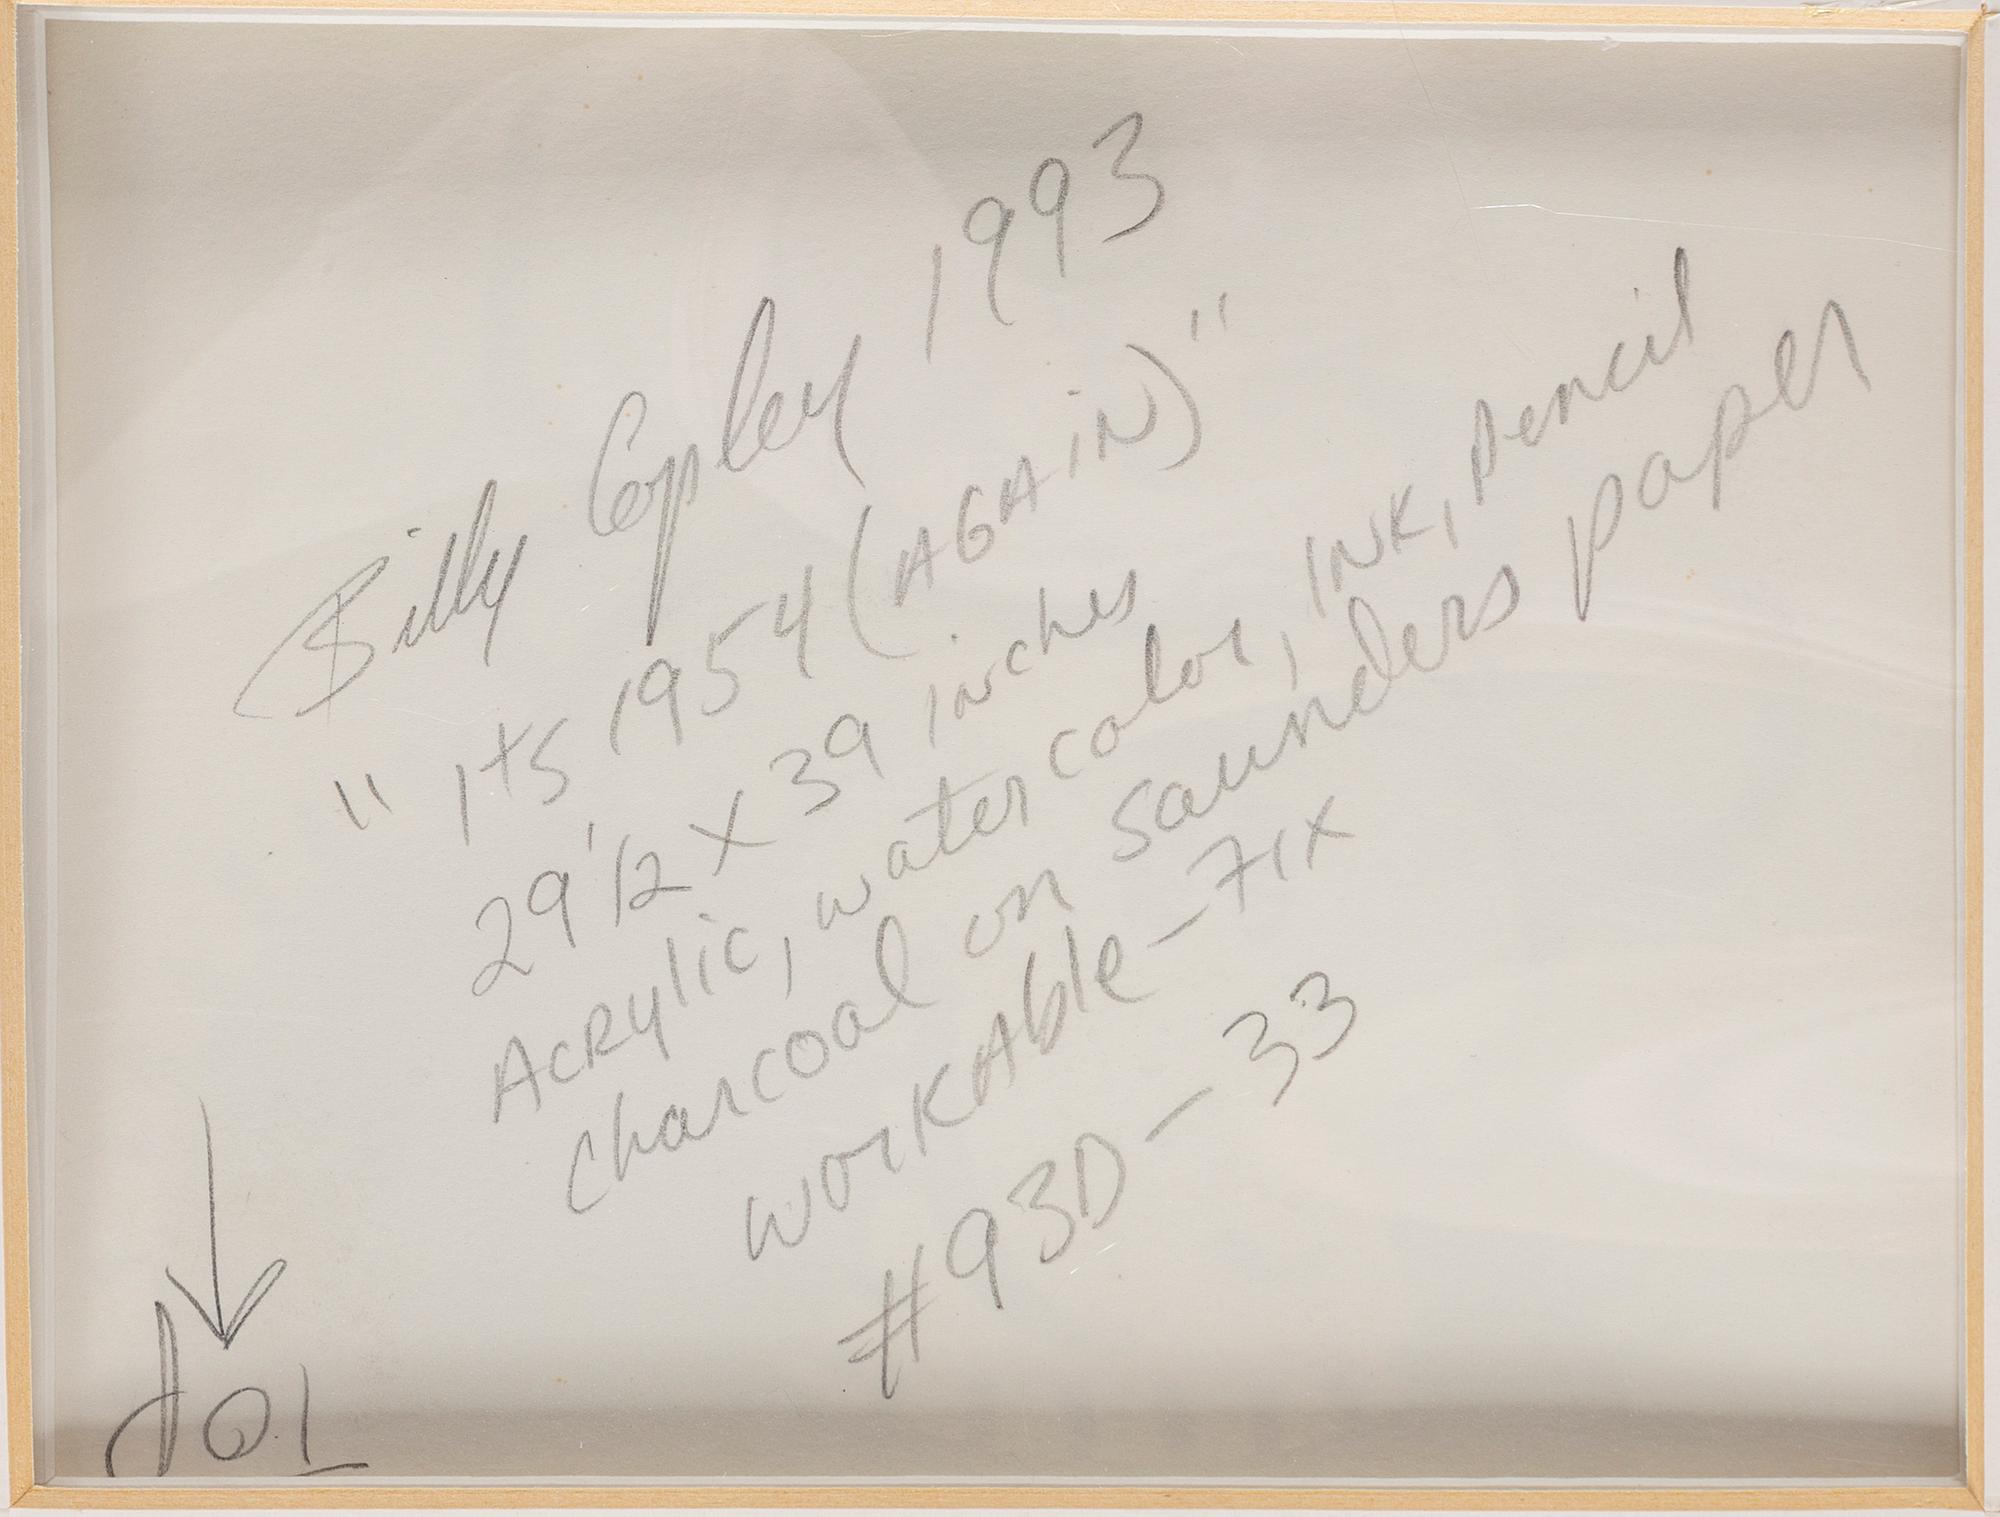 Billy Copley 1993
"Its 1954 (AGAIN)"
29 1/2 x 39 inches
Acrylic, water color, INK, pencil
charcoal on saunders paper
workAble-Fix
#93D-33